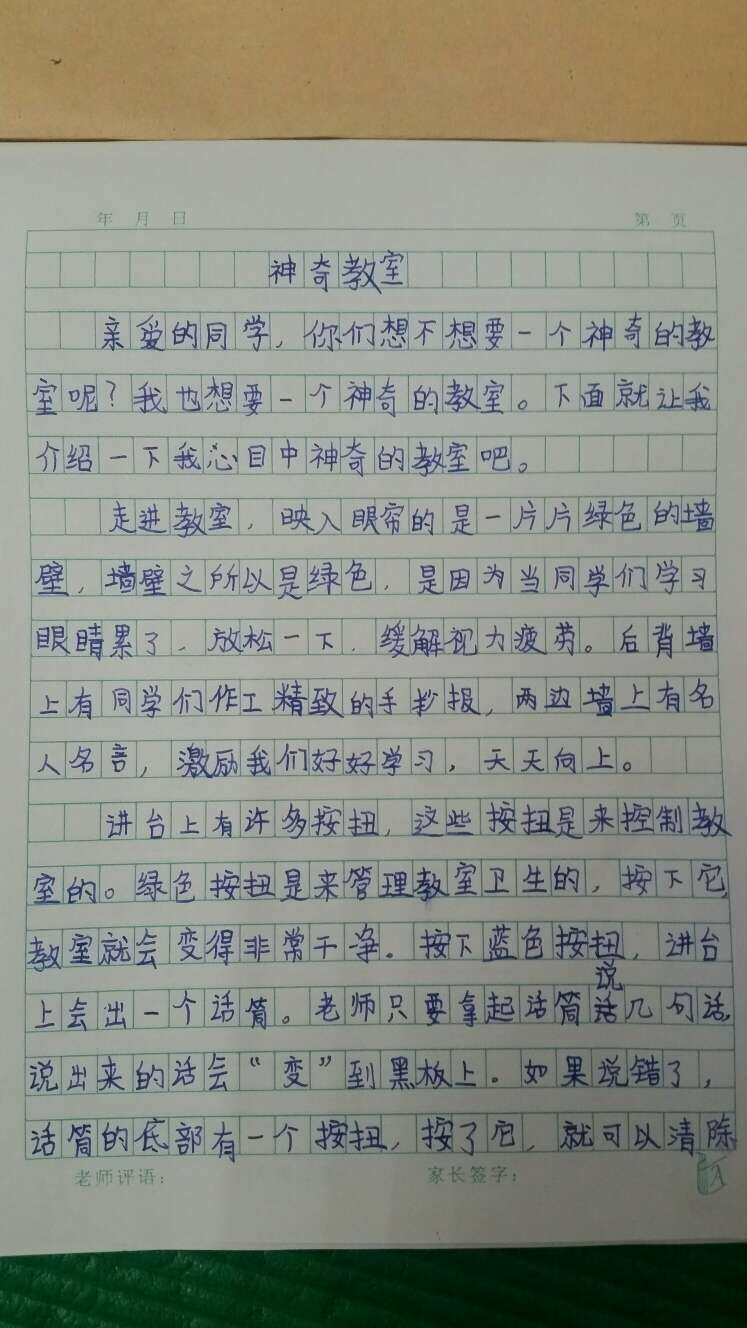 年 月 日 第 页
神奇教室
亲爱的同学，你们想不想要一个神奇的教
室呢？我也想要一个神奇的教室。下面就让我
介绍一下我心目中神奇的教室吧。
走进教室，映入眼帘的是一片片绿色的墙
壁，墙壁之所以是绿色，是因为当同学们学习
眼睛累了，放松一下，缓解视力疲劳。后背墙
上有同学们作工精致的手抄报，两边墙上有名
人名言，激励我们好好学习，天天向上。
讲台上有许多按扭，这些按扭是来控制教
室的。绿色按扭是来管理教室卫生的，按下它，
教室就会变得非常干净。按下蓝色按扭，讲台
上会出一个话筒。老师只要拿起话筒说几句话，
说出来的话会“变”到黑板上。如果说错了，
话筒的底部有一个按扭，按了它，就可以清除
老师评语： 家长签字：